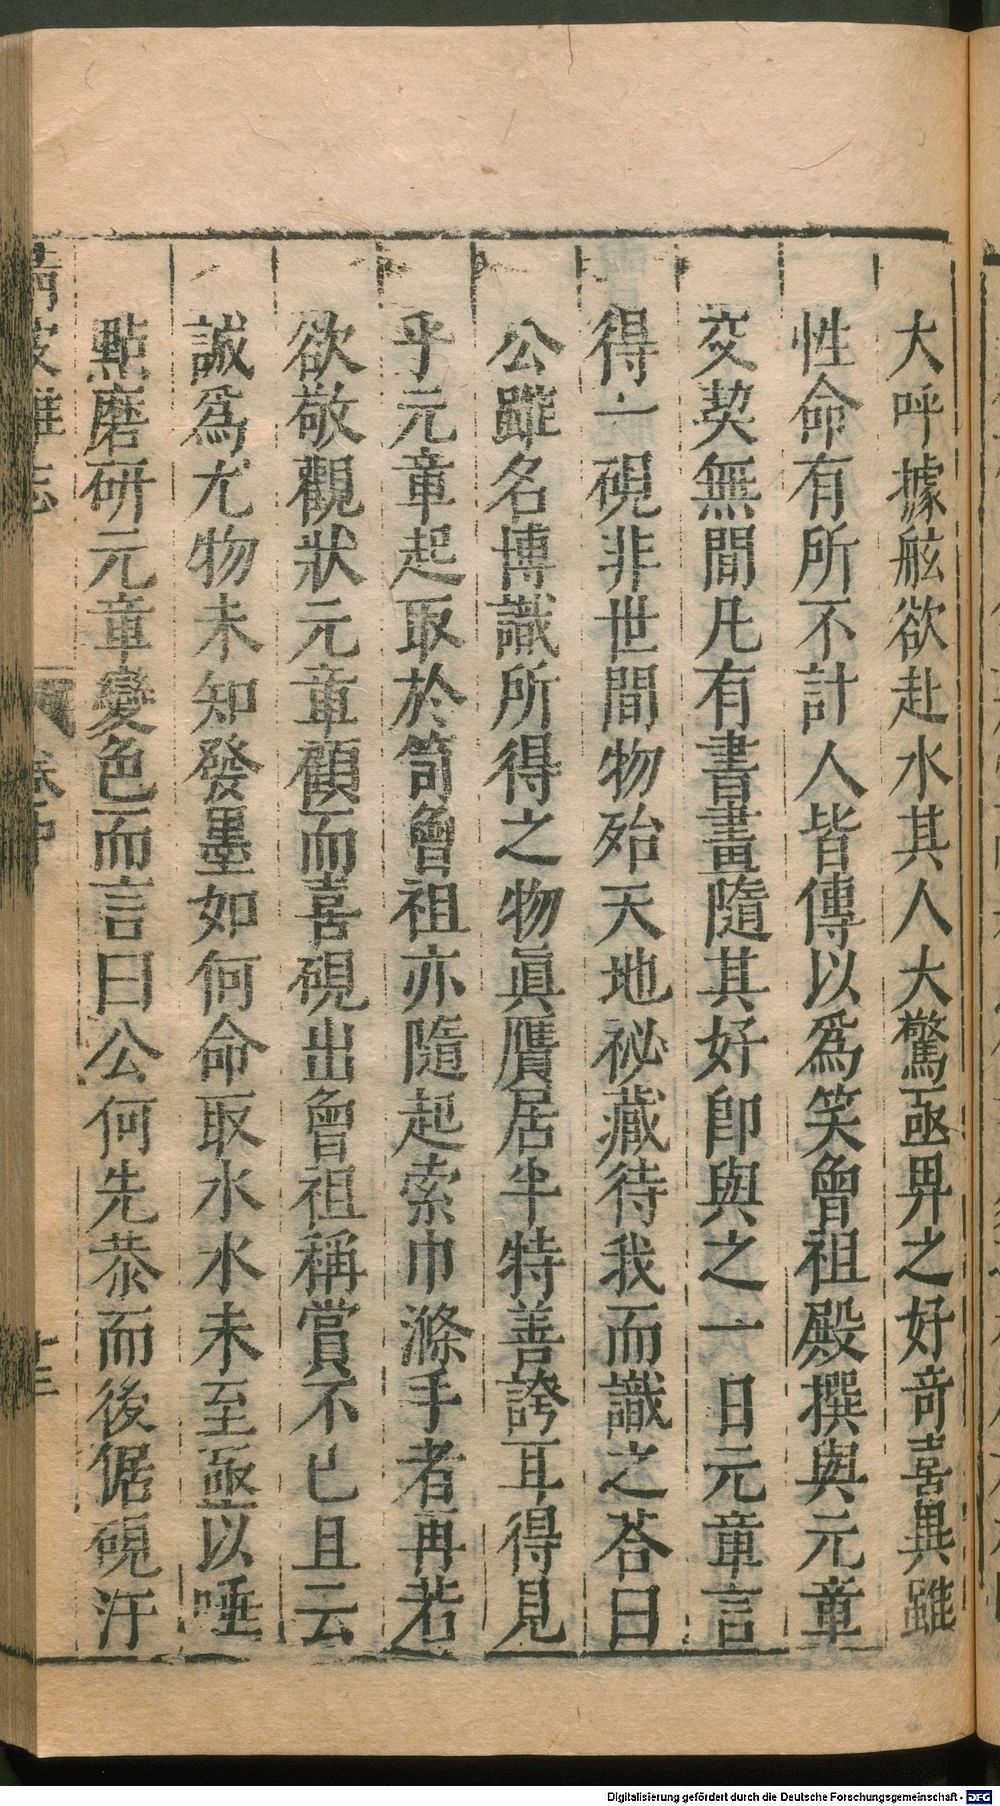 大呼據舷欲赴水其人大驚亟畀之好竒喜異雖
性命有所不計人皆傳以爲笑曾祖殿撰與元章
交契無間凡有書畫隨其好卽與之一日元章言
得一硯非世間物殆天地祕藏待我而識之荅曰
公雖名博識所得之物眞贋居半特善誇耳得見
乎元章起取於笥曾祖亦隨起索巾滌手者再若
欲敬觀狀元章顧而喜硯出曾祖稱賞不已且云
誠爲尤物未知發墨如何命取水水未至亟以唾
點磨硏元章變色而言曰公何先恭而後倨硯汙
清波雜志
卷中
十三
Digitalisierung gefördert durch die Deutsche Forschungsgemeinschaft - DFG